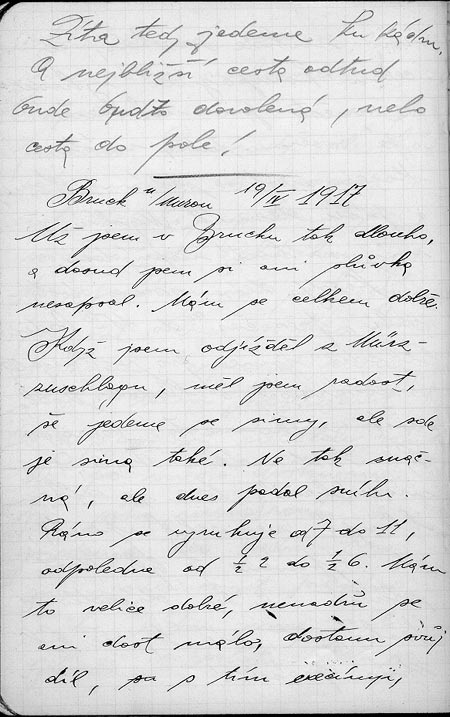 Zítra tedy jedeme ku kádru.
A nejbližší cesta odtud
bude buďto dovolená, nebo
cesta do pole!
Bruck a/Murou 19/IV 1917
Už jsem v Brucku tak dlouho,
a dosud jsem si ani slůvka
nenapsal. Mám se celkem dobře.
Když jsem odjížděl z Mürz-
zuschlagu, měl jsem radost,
že jedeme ze zimy, ale zde
je zima také. Ne tak znač-
ná, ale dnes padal sníh.
Ráno se vyrukuje od 7 do 11,
odpoledne od ½ 2 do ½ 6. Mám
to velice dobré, nenadřu se
ani dost málo, dostanu svůj
díl, a s tím